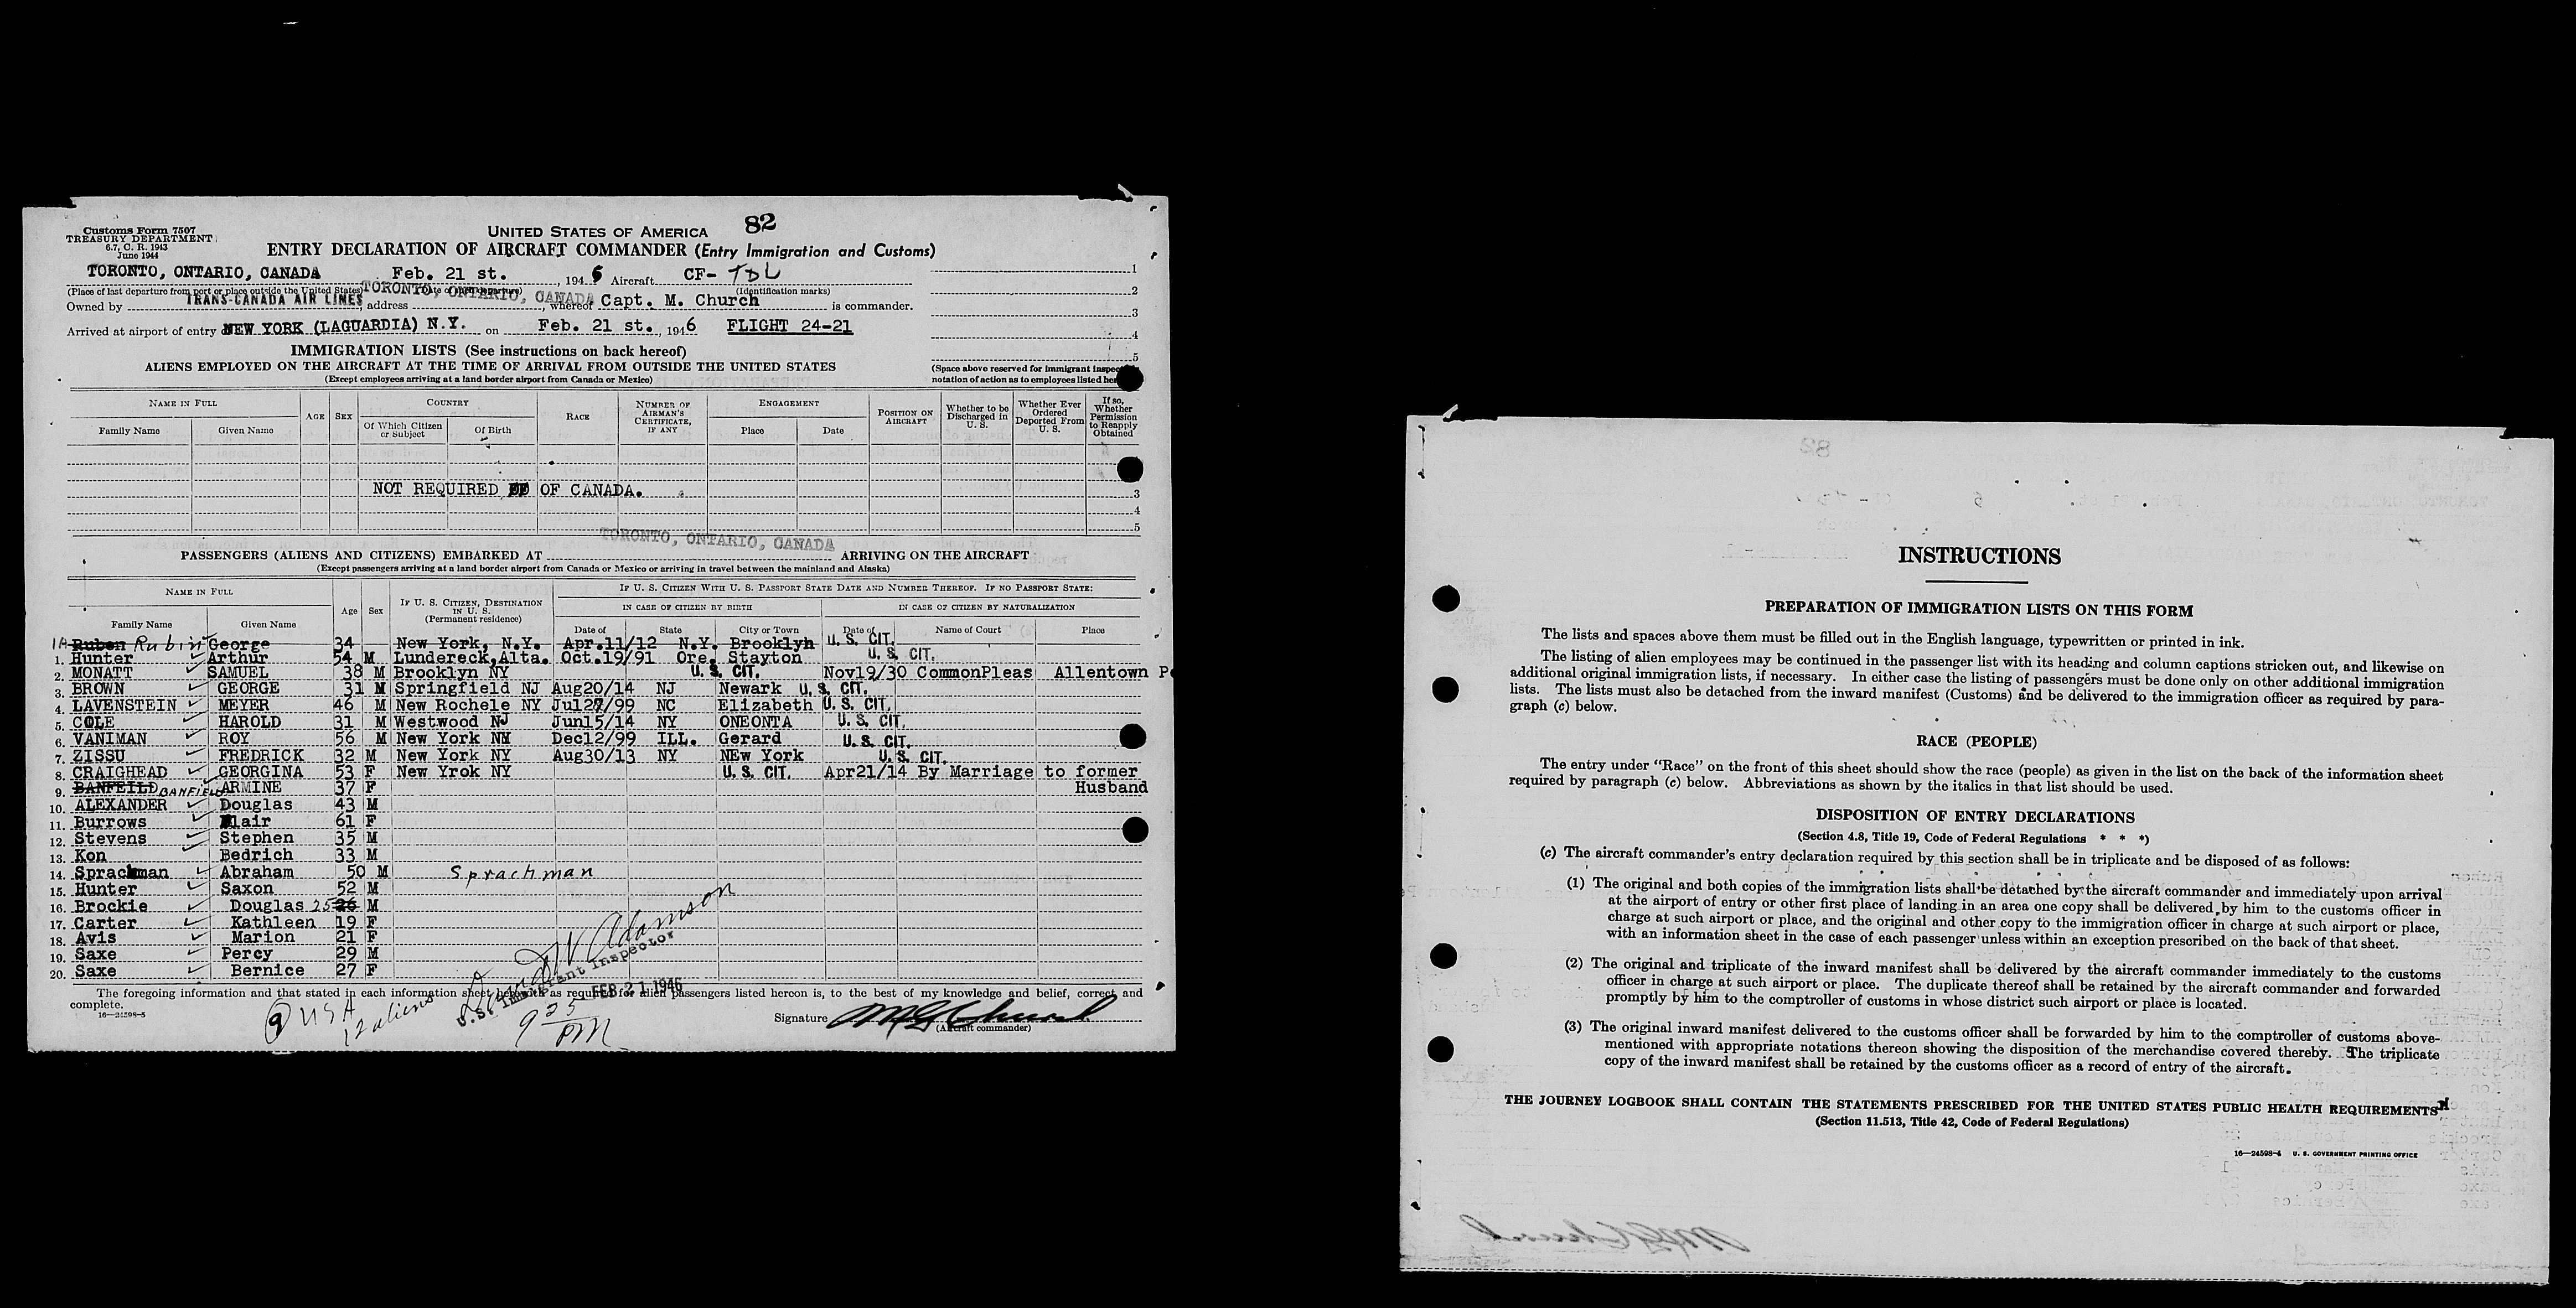 82
Customs Form 7507
TREASURY DEPARTMENT
6.7, C. R. 1943
June 1944
UNITED STATES OF AMERICA
ENTRY DECLARATION OF AIRCRAFT COMMANDER (Entry Immigration and Customs)
TORONTO, ONTARIO, CANADA Feb. 21 st. , 1946 Aircraft CF- TDL
(Place of last departure from port or place outside the United States) (Identification marks)
Owned by TRANS-CANADA AIR LINES, address TORONTO, ONTARIO, CANADA, whereof Capt. M. Church is commander.
Arrived at airport of entry NEW YORK (LAGUARDIA) N.Y. on Feb. 21 st., 1946 FLIGHT 24-21
1
2
3
4
5
IMMIGRATION LISTS (See instructions on back hereof)
ALIENS EMPLOYED ON THE AIRCRAFT AT THE TIME OF ARRIVAL FROM OUTSIDE THE UNITED STATES
(Except employees arriving at a land border airport from Canada or Mexico)
(Space above reserved for immigrant
notation of action as to employees listed
NAME IN FULL
Family Name Given Name
AGE SEX
COUNTRY
Of Which Citizen or Subject Of Birth
RACE
NUMBER OF AIRMAN'S CERTIFICATE, IF ANY
ENGAGEMENT
Place Date
POSITION ON AIRCRAFT
Whether to be Discharged in U. S.
Whether Ever Ordered Deported From U. S.
If so, Whether Permission to Reapply Obtained
NOT REQUIRED OF CANADA.
3
4
5
PASSENGERS (ALIENS AND CITIZENS) EMBARKED AT TORONTO, ONTARIO, CANADA ARRIVING ON THE AIRCRAFT
(Except passengers arriving at a land border airport from Canada or Mexico or arriving in travel between the mainland and Alaska)
NAME IN FULL
Family Name Given Name
Age Sex
IF U. S. CITIZEN, DESTINATION IN U. S.
(Permanent residence)
IF U. S. CITIZEN WITH U. S. PASSPORT STATE DATE AND NUMBER THEREOF. IF NO PASSPORT STATE:
IN CASE OF CITIZEN BY BIRTH IN CASE OF CITIZEN BY NATURALIZATION
Date of State City or Town Date of Name of Court Place
1A Ruben Rubin George 34 New York, N.Y. Apr.11/12 N.Y. Brooklyh U. S. CIT.
1. Hunter Arthur 54 M Lundereck,Alta. Oct.19/91 Ore. Stayton U. S. CIT.
2. MONATT SAMUEL 38 M Brooklyn NY U. S. CIT. Nov19/30 CommonPleas Allentown
3. BROWN GEORGE 31 M Springfield NJ Aug20/14 NJ Newark U. S. CIT.
4. LAVENSTEIN MEYER 46 M New Rochele NY Jul27/99 NC Elizabeth U. S. CIT.
5. COLE HAROLD 31 M Westwood NJ Jun15/14 NY ONEONTA U. S. CIT.
6. VANIMAN ROY 56 M New York NY Dec12/99 ILL. Gerard U. S. CIT.
7. ZISSU FREDRICK 32 M New York NY Aug30/13 NY NEw York U. S. CIT.
8. CRAIGHEAD GEORGINA 53 F New Yrok NY U. S. CIT. Apr21/14 By Marriage to former
9. BANFEILD BANFIELD ARMINE 37 F Husband
10. ALEXANDER Douglas 43 M
11. Burrows lair 61 F
12. Stevens Stephen 35 M
13. Kon Bedrich 33 M
14. Sprachman Abraham 50 M Sprachman
15. Hunter Saxon 52 M
16. Brockie Douglas 25 26 M
17. Carter Kathleen 19 F
18. Avis Marion 21 F
19. Saxe Percy 29 M
20. Saxe Bernice 27 F
The foregoing information and that stated in each information sheet herewith as required for alien passengers listed hereon is, to the best of my knowledge and belief, correct and
complete.
16—24598-5
9 USA
12 aliens
Adamson
U.S. Immigrant Inspector
FEB 21 1946
9 25 PM
Signature
(Aircraft commander)
INSTRUCTIONS
PREPARATION OF IMMIGRATION LISTS ON THIS FORM
The lists and spaces above them must be filled out in the English language, typewritten or printed in ink.
The listing of alien employees may be continued in the passenger list with its heading and column captions stricken out, and likewise on
additional original immigration lists, if necessary. In either case the listing of passengers must be done only on other additional immigration
lists. The lists must also be detached from the inward manifest (Customs) and be delivered to the immigration officer as required by para-
graph (c) below.
RACE (PEOPLE)
The entry under "Race" on the front of this sheet should show the race (people) as given in the list on the back of the information sheet
required by paragraph (c) below. Abbreviations as shown by the italics in that list should be used.
DISPOSITION OF ENTRY DECLARATIONS
(Section 4.8, Title 19, Code of Federal Regulations * * *)
(c) The aircraft commander's entry declaration required by this section shall be in triplicate and be disposed of as follows:
(1) The original and both copies of the immigration lists shall be detached by the aircraft commander and immediately upon arrival
at the airport of entry or other first place of landing in an area one copy shall be delivered by him to the customs officer in
charge at such airport or place, and the original and other copy to the immigration officer in charge at such airport or place,
with an information sheet in the case of each passenger unless within an exception prescribed on the back of that sheet.
(2) The original and triplicate of the inward manifest shall be delivered by the aircraft commander immediately to the customs
officer in charge at such airport or place. The duplicate thereof shall be retained by the aircraft commander and forwarded
promptly by him to the comptroller of customs in whose district such airport or place is located.
(3) The original inward manifest delivered to the customs officer shall be forwarded by him to the comptroller of customs above-
mentioned with appropriate notations thereon showing the disposition of the merchandise covered thereby. The triplicate
copy of the inward manifest shall be retained by the customs officer as a record of entry of the aircraft.
THE JOURNEY LOGBOOK SHALL CONTAIN THE STATEMENTS PRESCRIBED FOR THE UNITED STATES PUBLIC HEALTH REQUIREMENTS
(Section 11.513, Title 42, Code of Federal Regulations)
16—24598-4 U. S. GOVERNMENT PRINTING OFFICE